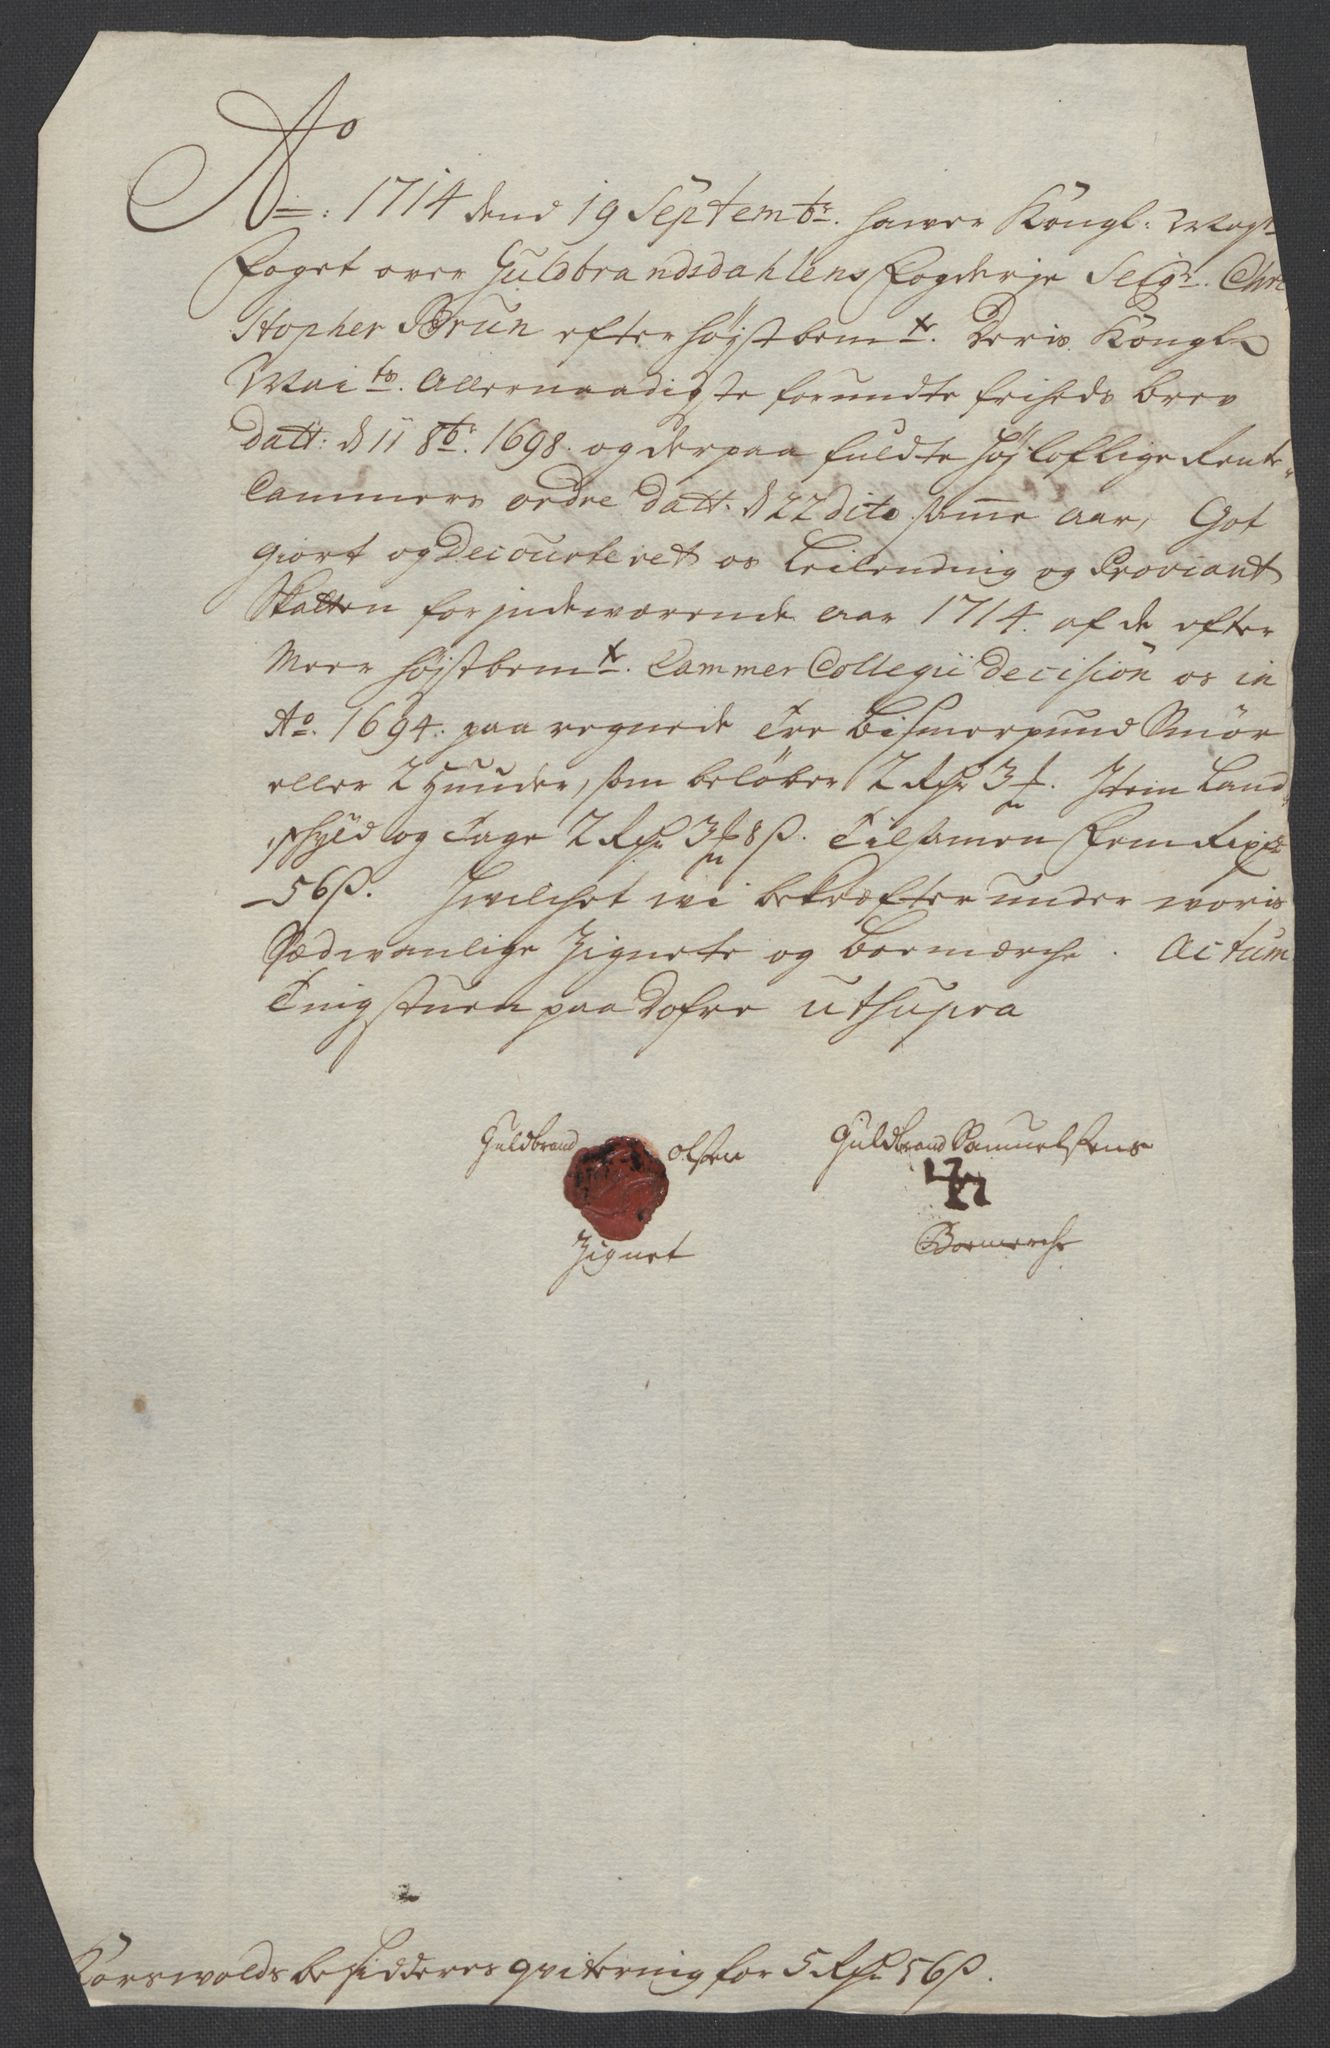 Ao: 1714 dend 19 Septembr. hawer Kongl: Mayts
foget over Guldbrandsdahlens fogderje Seigr. Chri
stopher Brun efter højstbemte. Deris Kongl
Maits. Allernaadigste forundte friheds brev
datt: d 11 8br. 1698. og derpaa fuldte Højloflige Rente
Cammers ordre datt: d 22 dito samme aar, Got
giort og decourteret os Leilending og Proviant
Skatten for indewærende aar 1714. af de efter
Meer højstbemte. Cammer Collegii decision os in
Ao. 1694. paa regnede Tre bismerpund Smör
eller 2 Huuder, som beløber 2 Rdr 3 f. Item Land
skyld og Tage 2 Rdr 3 f 8 ß. Tilsamen fem Rixdr
56 ß. Hvilchet wi bekræfter under woris
Sædwanlige Zignete og boemærche. Actum
Tingstuen paa Dofre ut supra
Guldbrand olsen Guldbrand Samuelsens
Zignet Boemerche
Korswolds besidderes qvitering for 5 Rdr 56 ß.